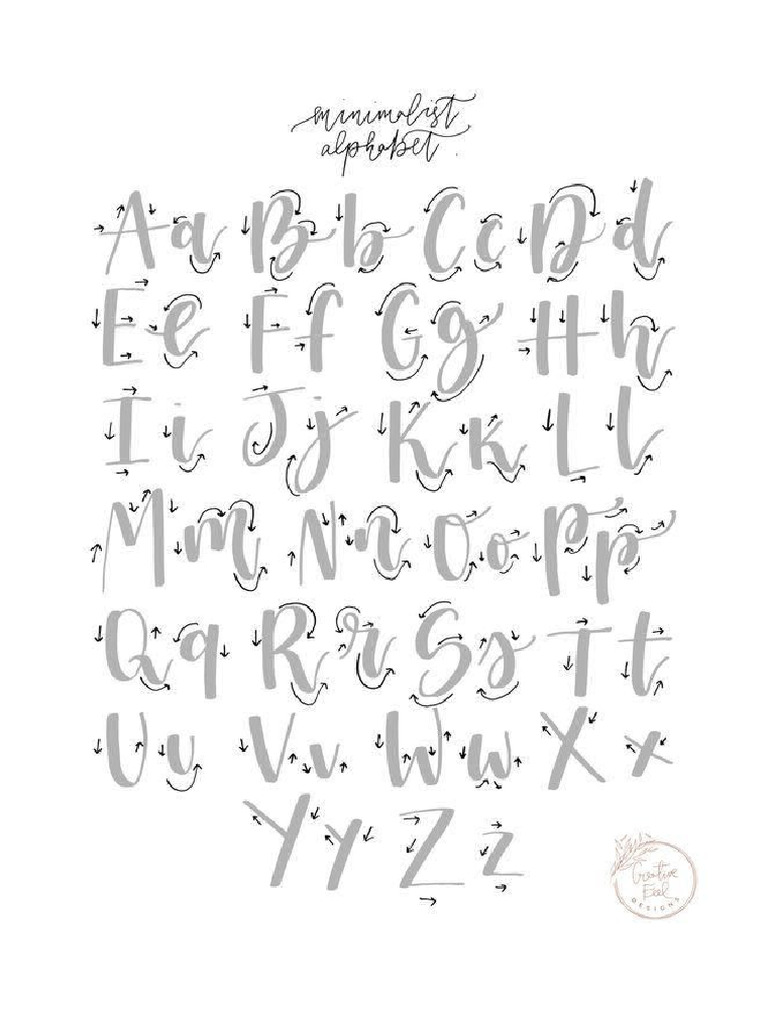 minimalist
alphabet.
Aa Bb Cc Dd
Ee Ff Gg Hh
Ii Jj Kk Ll
Mm Nn Oo Pp
Qq Rr Ss Tt
Uu Vv Ww Xx
Yy Zz
Creative
DESIGNS